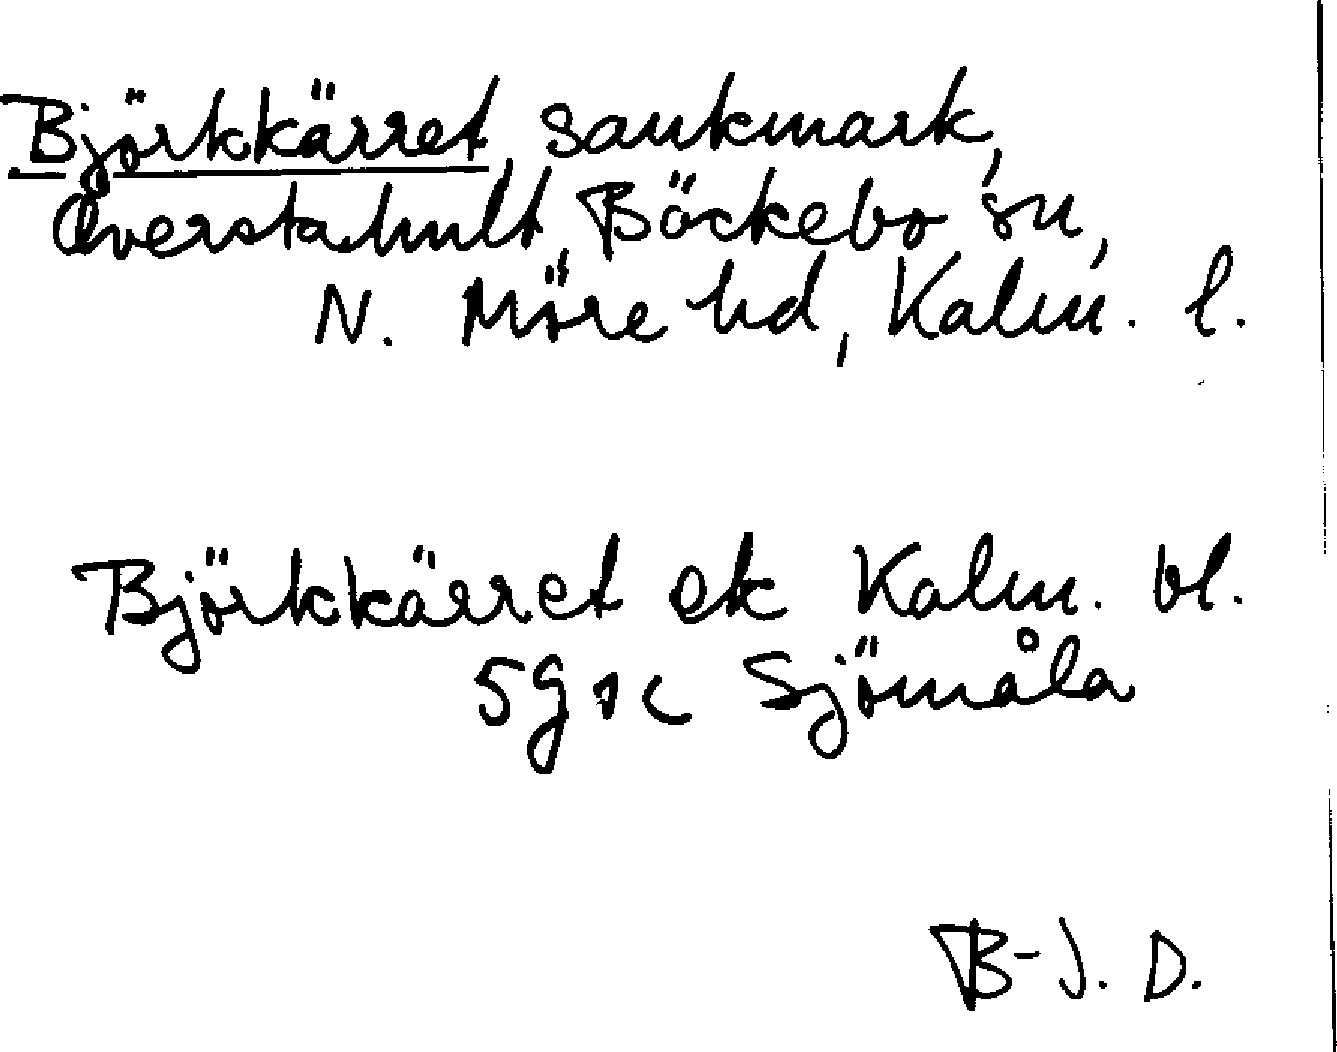 Björkkärret, sankmark,
Överstahult, Bäckebo sn,
N. Möre hd, Kalm. l.
Björkkärret ek Kalm. bl.
5G 1c Sjömåla
B-J. D.